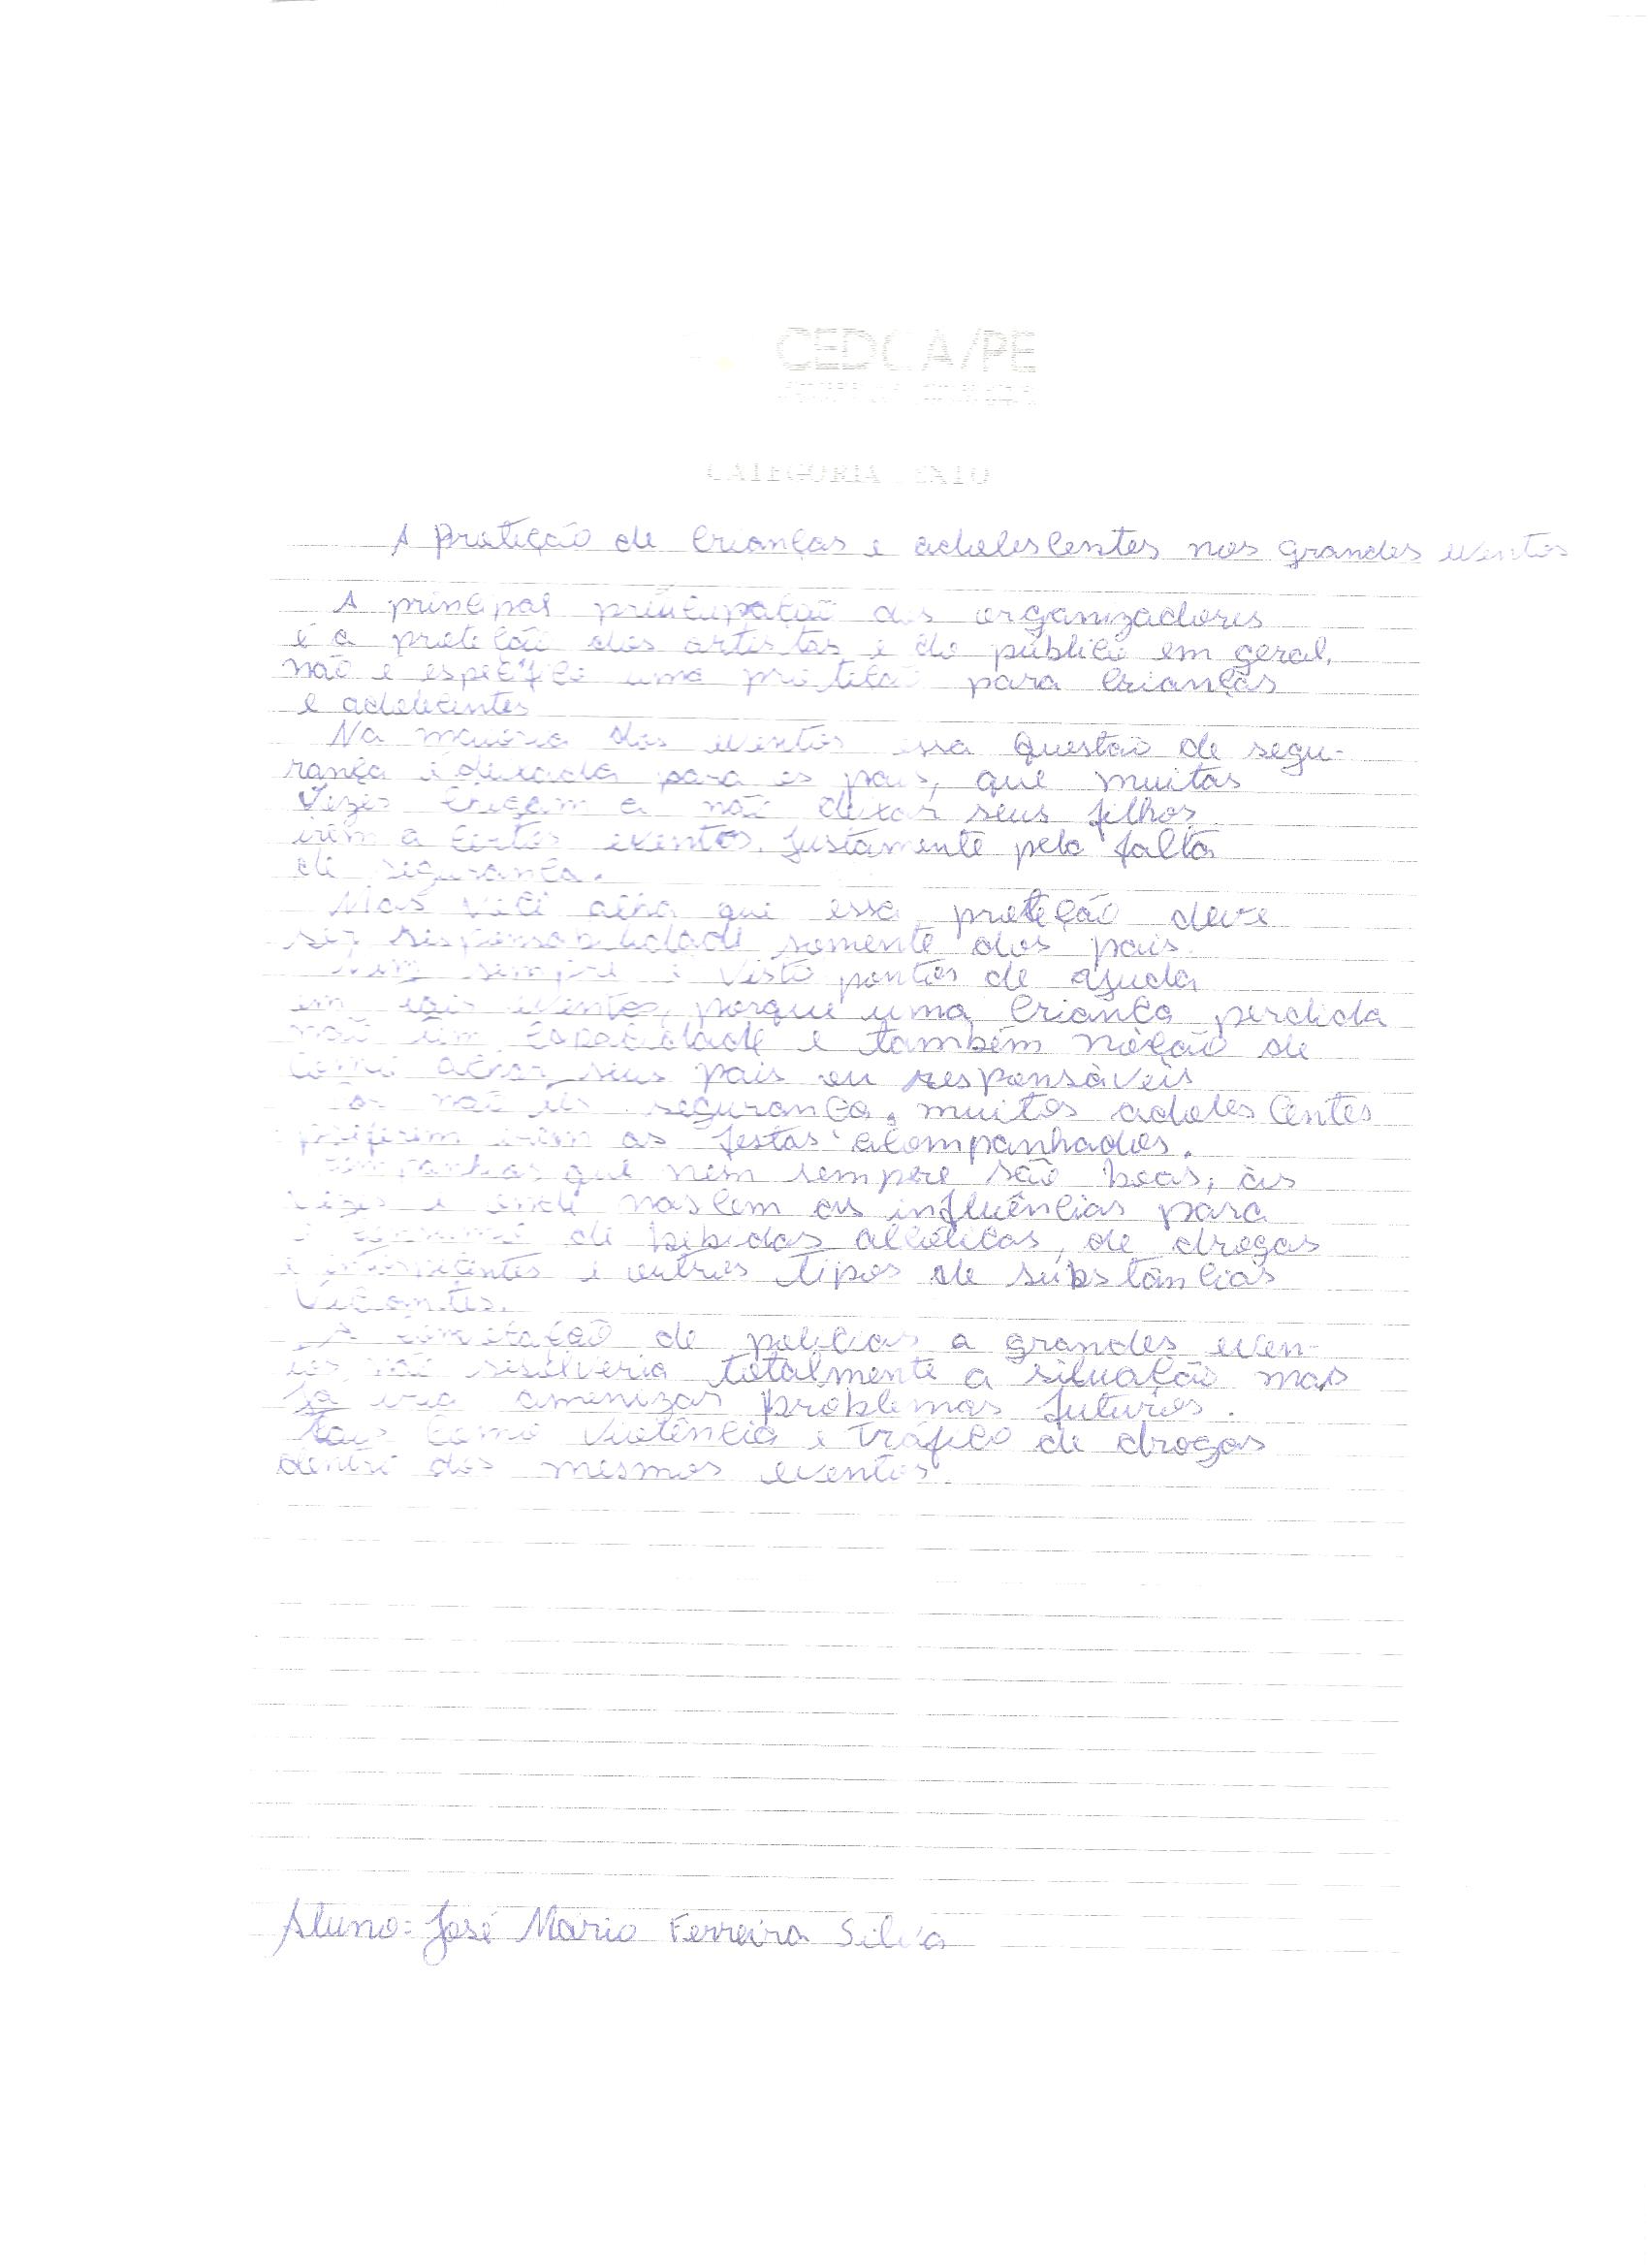 CEDCA/PE
CATEGORIA TEXTO
A proteção de crianças e adolescentes nos grandes eventos
A principal preocupação dos organizadores
é a proteção dos artistas e do público em geral,
não é específico uma proteção para crianças
e adolecentes
Na maioria dos eventos essa questão de segu-
rança é deixada para os pais, que muitas
vezes chegam a não deixar seus filhos
irem a certos eventos. Justamente pela falta
de segurança.
Mas você acha que essa proteção deve
ser responsabilidade somente dos pais.
Nem sempre é visto pontos de ajuda
em tais eventos, porque uma criança perdida
não tem capacidade e também noção de
como achar seus pais ou responsáveis
Por não ter segurança, muitos adolescentes
preferem irem as festas acompanhados.
companhias que nem sempre são boas, às
vezes é onde nascem as influências para
o consumo de bebidas alcóolicas, de drogas
e outros tipos de substâncias
viciantes.
A de policias a grandes even-
tos não resolveria totalmente a situação mas
já iria amenizar problemas futuros.
tais como violência e tráfico de drogas
dentro dos mesmos eventos.
Aluno: José Mário Ferreira Silva